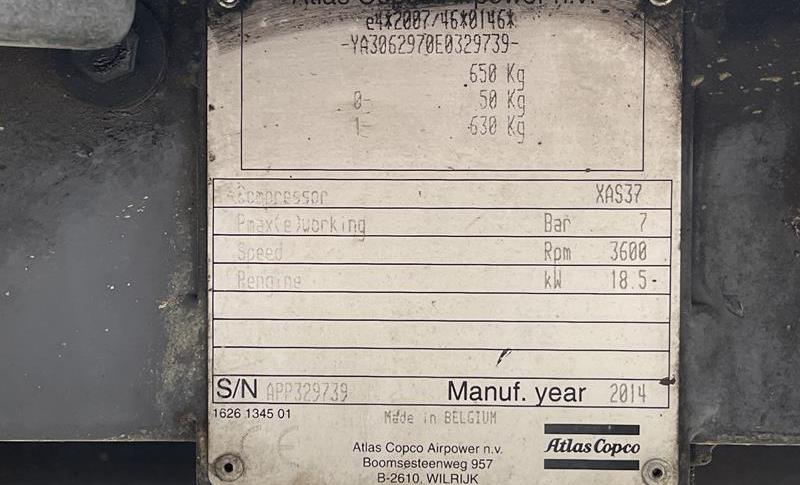 Atlas Copco Airpower n.v.
e4*2007/46*0146*
-YA3062970E0329739-
650 Kg
0- 50 Kg
1- 630 Kg
Compressor XAS37
Pmax(e)working Bar 7
Speed Rpm 3600
Pengine kW 18.5-
S/N APP329739 Manuf. year 2014
1626 1345 01
Made in BELGIUM
CE
Atlas Copco Airpower n.v.
Boomsesteenweg 957
B-2610, WILRIJK
Atlas Copco